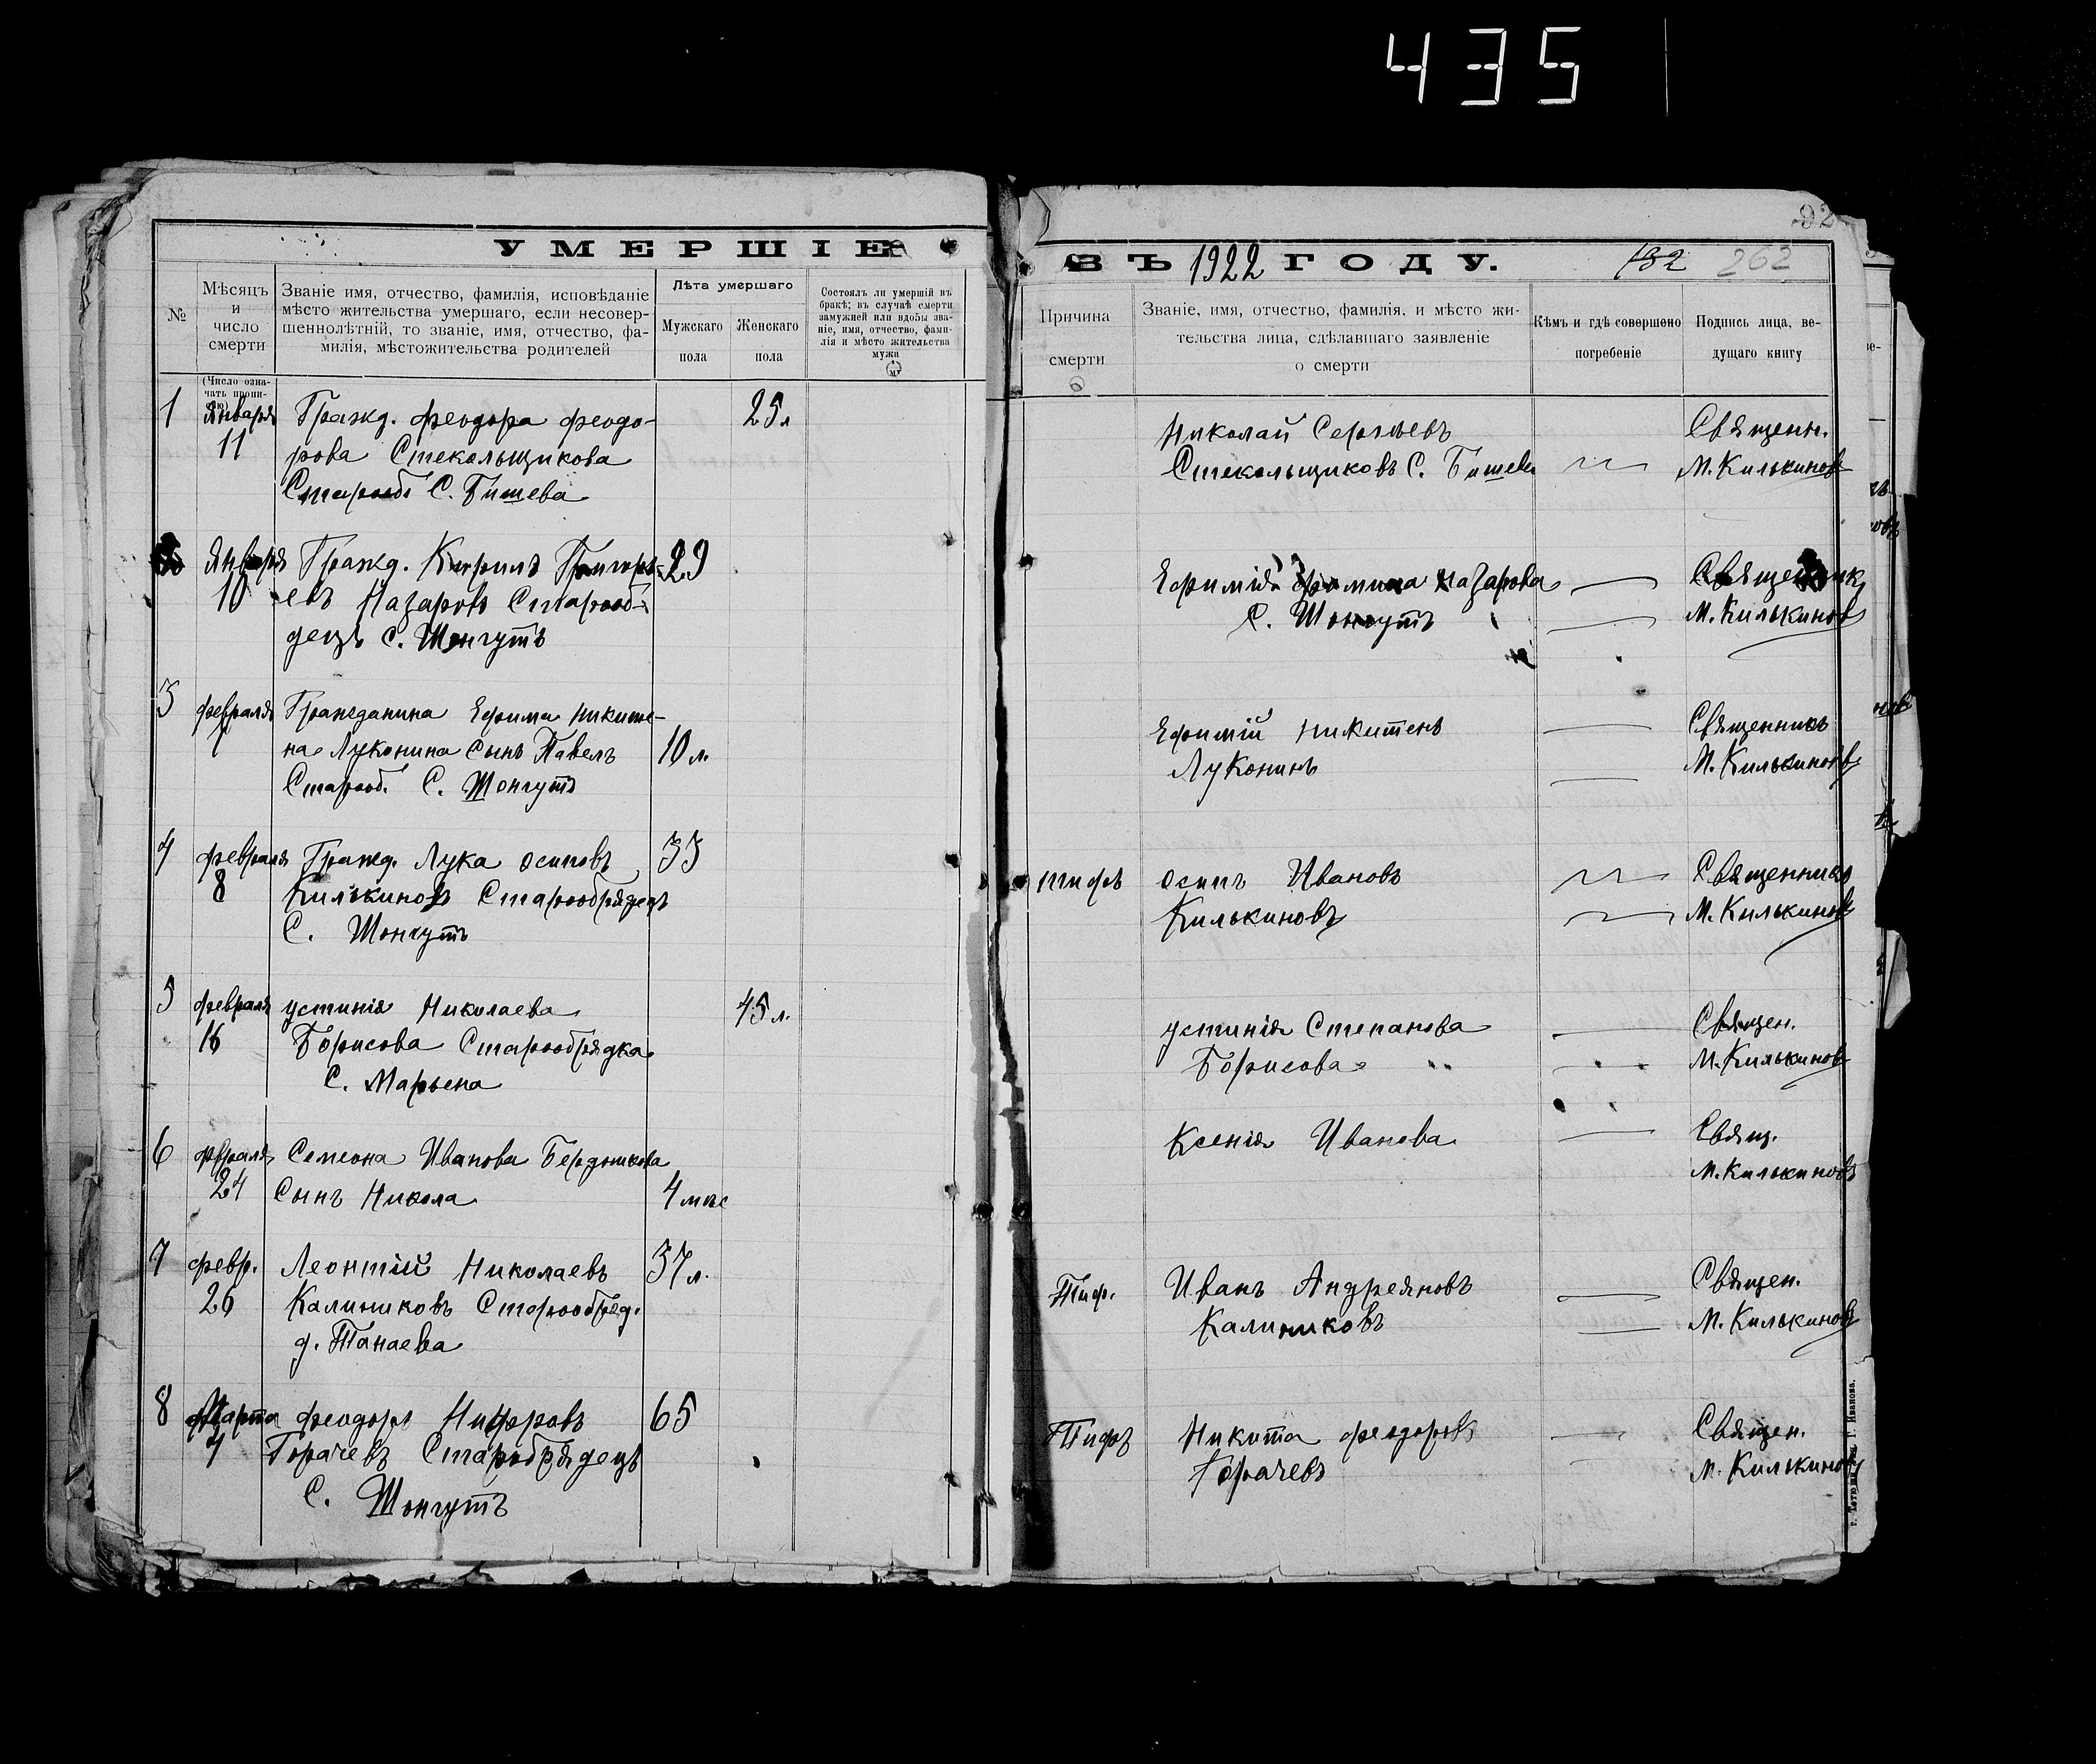 435
92
УМЕРШІЕ
ВЪ 1922 ГОДУ.
132 262
№
Мѣсяцъ и число смерти
(Число означать прописью)
Званіе имя, отчество, фамилія, исповѣданіе
мѣсто жительства умершаго, если несовер-
шеннолѣтній, то званіе, имя, отчество, фа-
милія, мѣстожительства родителей
Лѣта умершаго
Мужскаго пола
Женскаго пола
Состоялъ ли умершій въ
бракѣ; въ случаѣ смерти
замужней или вдовы зва-
ніе, имя, отчество, фами-
лія и мѣсто жительства
мужа
Причина смерти
Званіе, имя, отчество, фамилія, и мѣсто жи-
тельства лица, сдѣлавшаго заявленіе
о смерти
Кѣмъ и гдѣ совершено
погребеніе
Подпись лица, ве-
дущаго книгу
1 Января Гражд. Феодора Феодо- 25 л
11 рова Стекольщикова
Старооб С. Бишева
Николай Сергѣевъ Священ.
Стекольщиковъ С. Бишева М. Килькинов
Января Гражд. Кирилъ Григорь- 29
10 евъ Назаровъ Старооб-
децъ С. Шонгутъ
Ефимія Назарова Священник
С. Шонгутъ М. Килькинов
3 Февраля Гражданина Ефима Никите-
1 на Луконина сынъ Павелъ 10 л.
Старооб. С. Шонгутъ
Ефимій Никитенъ Священникъ
Луконинъ М. Килькиновъ
4 Февраля Гражд. Лука Осиповъ 33
8 Килькиновъ Старообрядецъ
С. Шонгутъ
тифъ Осипъ Ивановъ Священникъ
Килькиновъ М. Килькинов
5 Февраля Устинія Николаева 45 л.
16 Борисова Старообрядка
С. Марьена
Устинія Степанова Священ.
Борисова М. Килькинов
6 Февраля Семеона Иванова Бердникова
24 Сынъ Никола 4 мѣс
Ксенія Иванова Свящ.
М. Килькиновъ
7 Февр. Леонтій Николаевъ 37 л.
26 Калиниковъ Старообряд.
д. Танаева
Тиф. Иванъ Андреяновъ Священ.
Калиниковъ М. Килькиновъ
8 Марта Феодоръ Нифровъ 65
4 Горачевъ Старобрядецъ
С. Шонгутъ
Тифъ Никита Феодоровъ Священ.
Горачевъ М. Килькиновъ